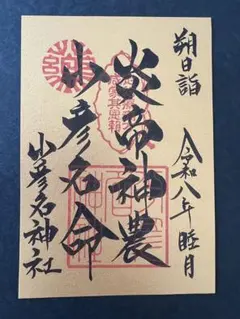 朔日詣
令和八年睦月
炎帝神農
少彦名命
少彦名神社